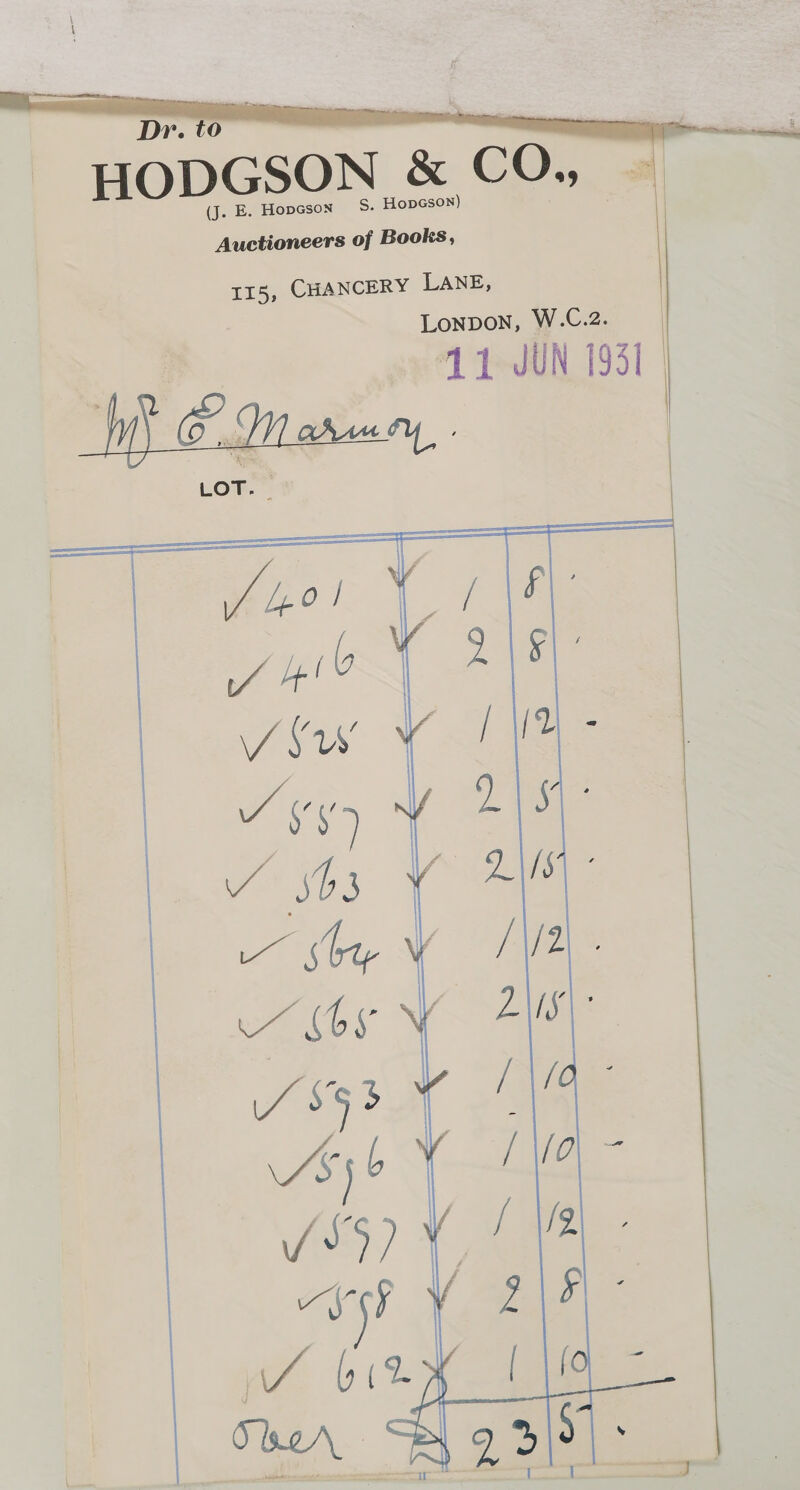 Dr. to
HODGSON & CO.,
(J. E. HODGSON S. HODGSON)
Auctioneers of Books,
115, CHANCERY LANE,
LONDON, W.C.2.
11 JUN 1931
Mr E. Marmoy.
LOT.
✓401 ✓ 1 8 .
✓416 ✓ 2 8 .
✓525 ✓ 1 12 -
✓557 ✓ 2 5 .
✓563 ✓ 2 15 .
✓564 ✓ 1 12 .
✓565 ✓ 2 15 .
✓593 ✓ 1 10 -
✓596 ✓ 1 10 -
✓597 ✓ 1 12 .
✓598 ✓ 2 8 -
✓612 ✓ 1 10 -
Over £ 23 5 .